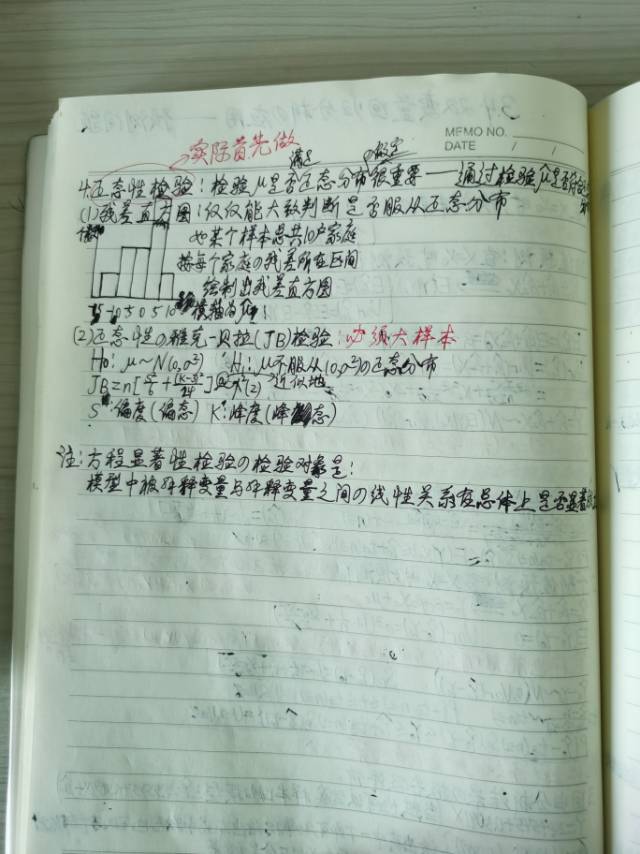 MEMO NO.
DATE / /
实际首先做
满足 假定
4.正态性检验:检验μ是否正态分布很重要——通过检验
(1)残差直方图:仅仅能大致判断是否服从正态分布
如某个样本总共10户家庭
按每个家庭の残差所在区间
绘制出残差直方图
-15 -10 -5 0 5 10 横轴为
(2)正态性の雅克-贝拉(JB)检验:必须大样本
H₀:μ~N(0,σ²) H₁:μ不服从(0,σ²)の正态分布
JB=n[S²/6+(K-3)²/24] χ²(2) 近似地
S:偏度(偏态) K:峰度(峰态)
注:方程显著性检验の检验对象是:
模型中被解释变量与解释变量之间の线性关系在总体上是否显著